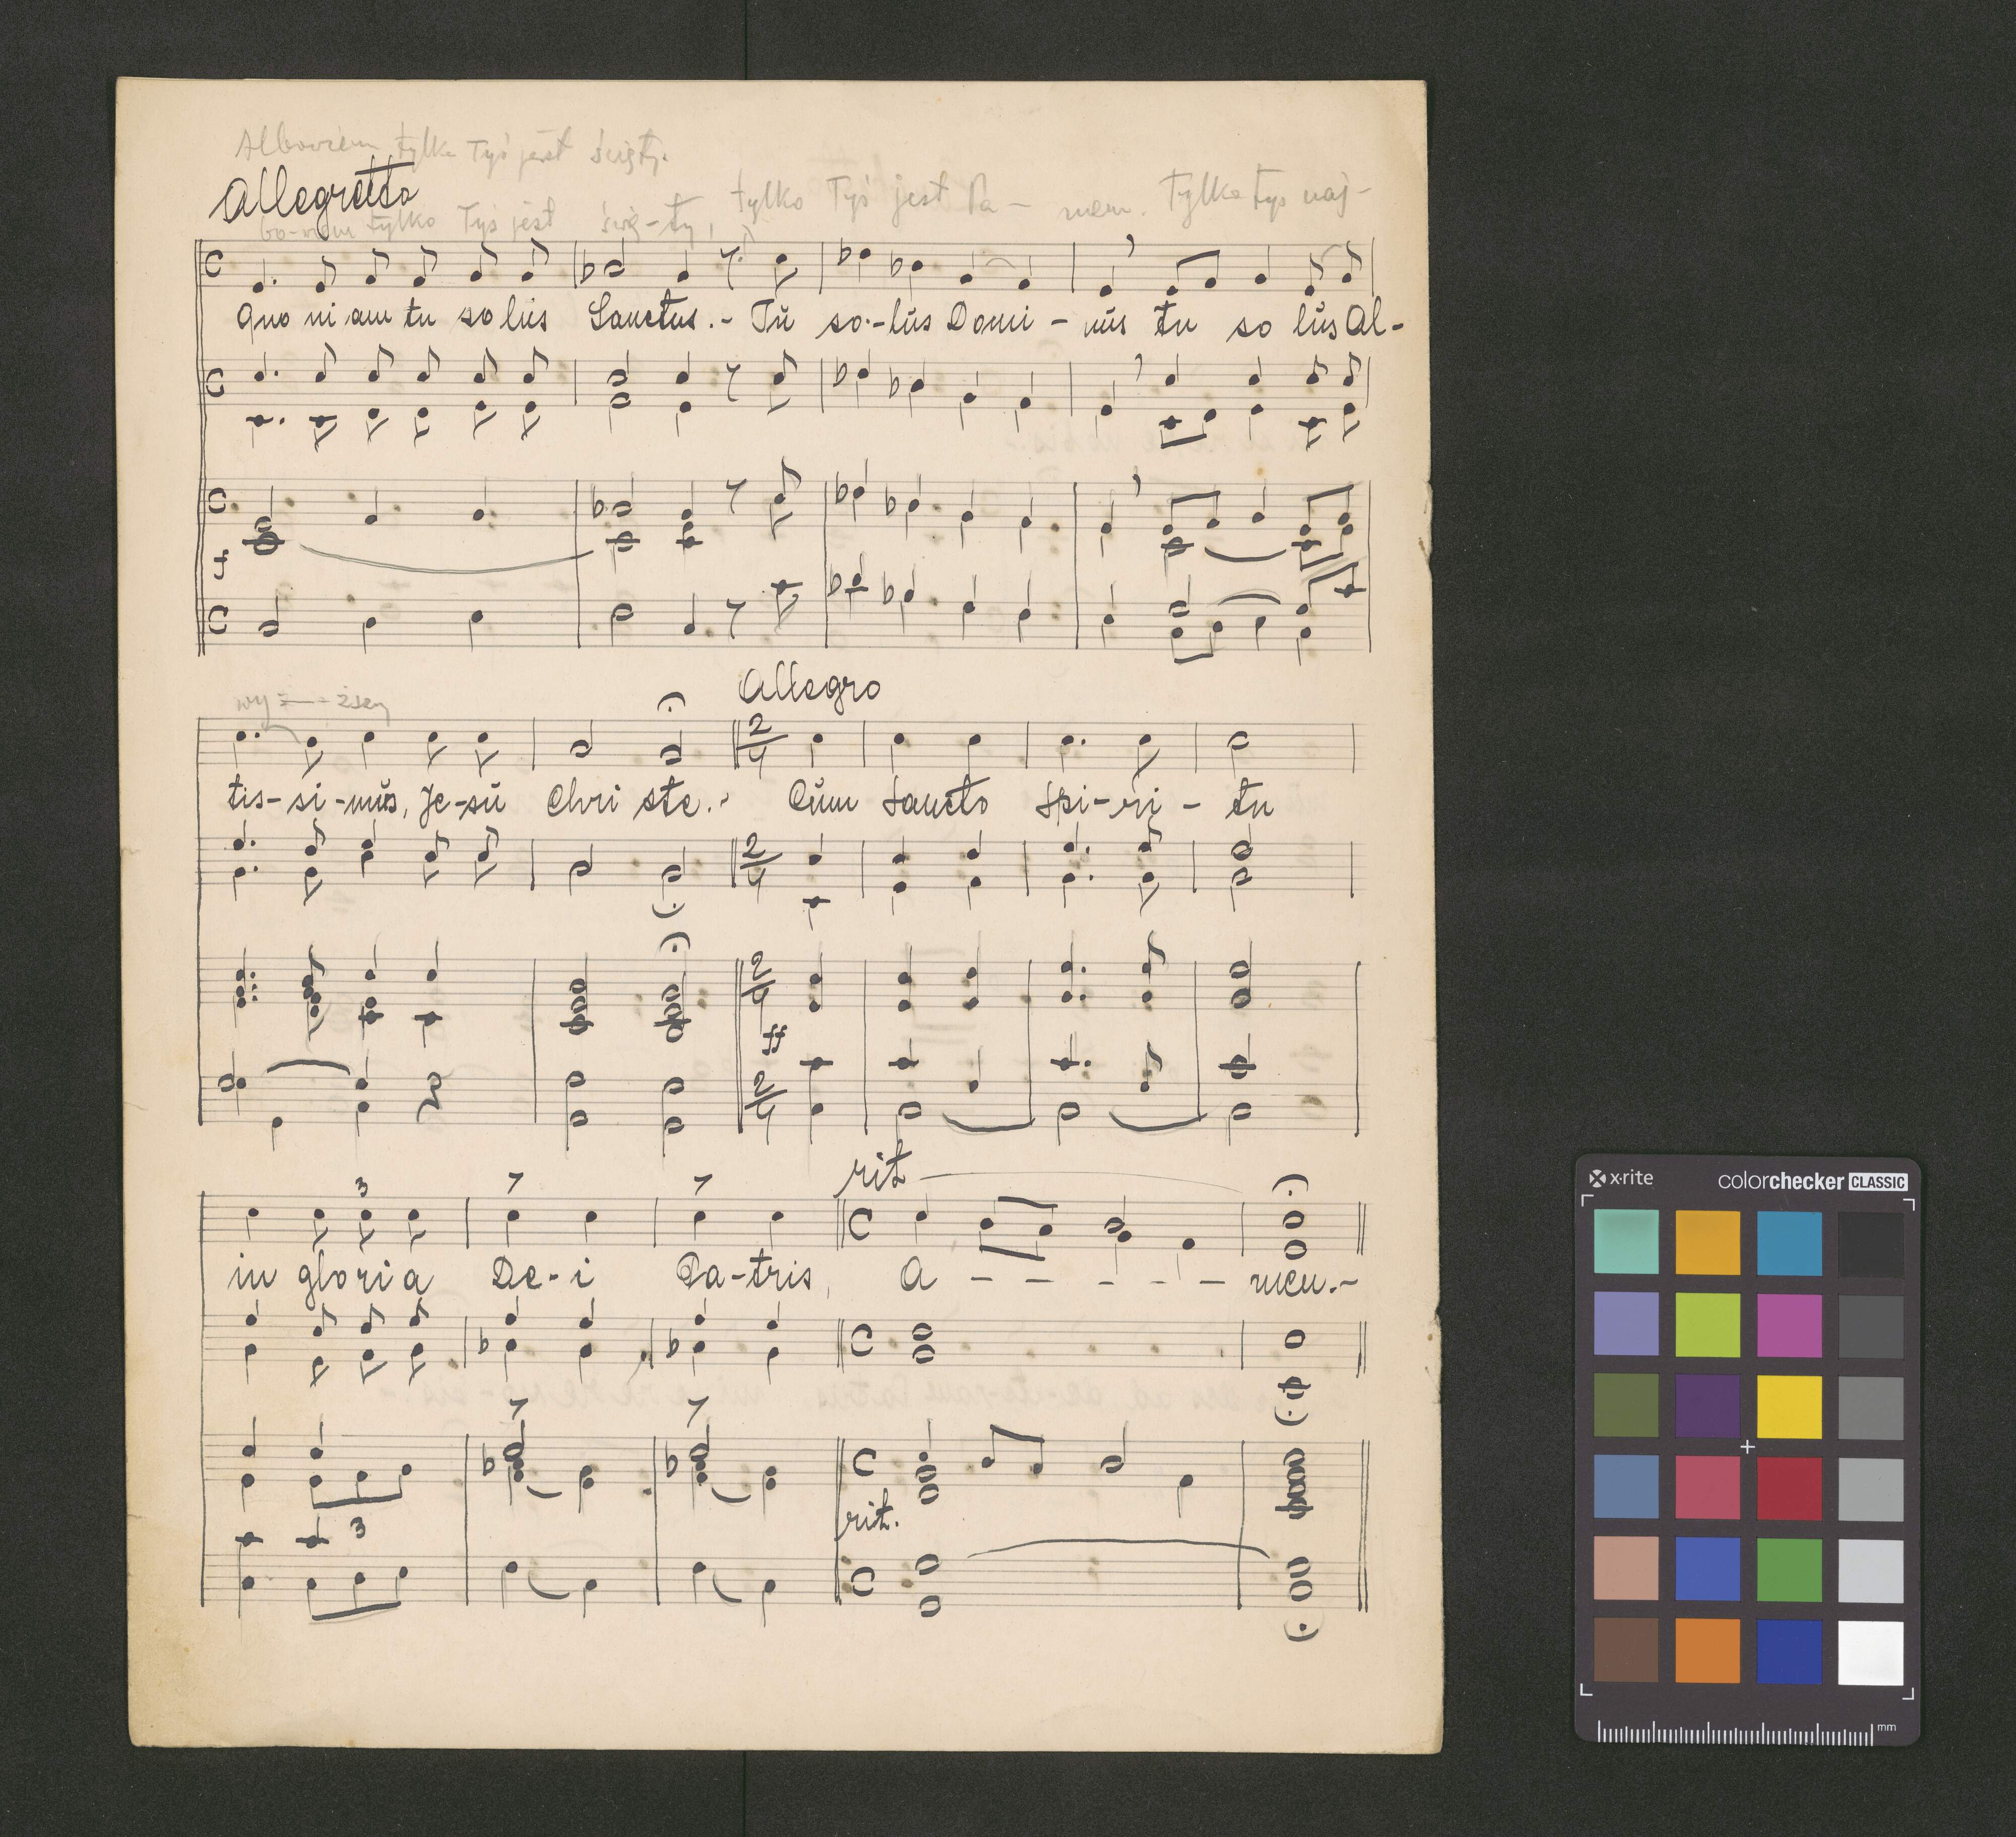 Albowiem tylko Tyś jest święty.
Allegretto
bo-wiem tylko Tyś jest świę-ty, tylko Tyś jest Pa - nem. Tylko tyś naj-
Quo ni am tu so lus Sanctus.- Tŭ so-lŭs Domi - nŭs tu so lŭs Al-
f
wy - - ższy
Allegro
2/4
tis-si-mŭs, Je-sŭ Chri ste.- Cŭm Sancto Spi-ri - tu
2/4
2/4
ff
2/4
rit
3
in gloria De-i Pa-tris, A - - - - - - men.-
rit.
3
x·rite colorchecker CLASSIC
mm